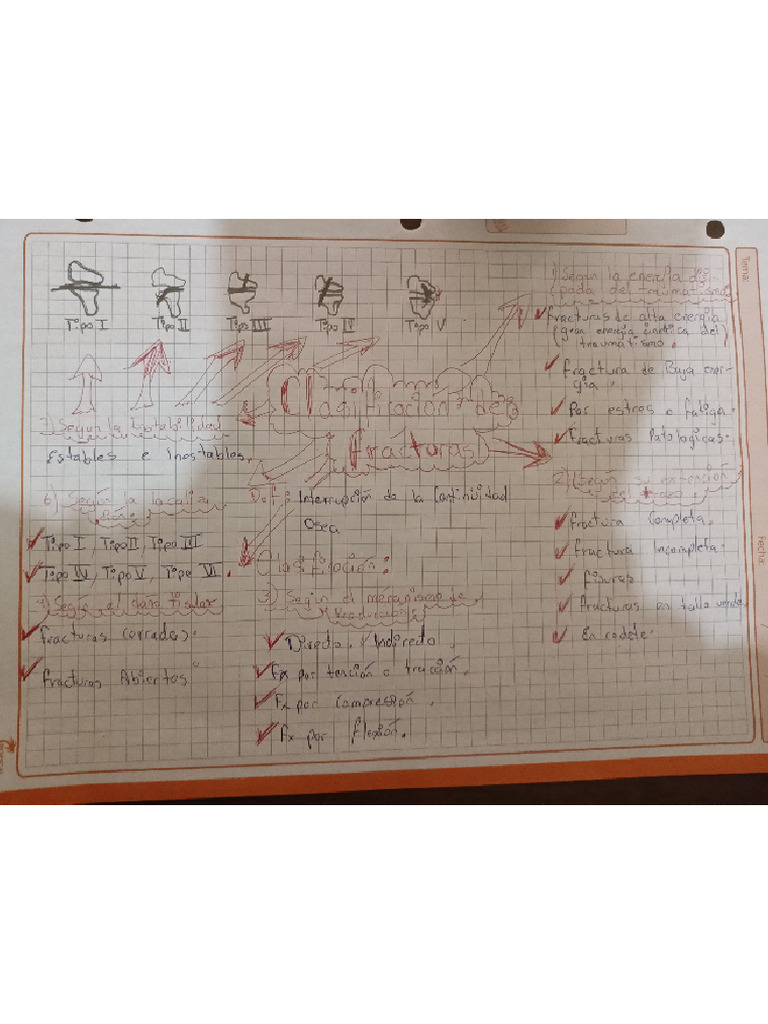 Tema:
Fecha:
Tipo I
Tipo II
Tipo III
Tipo IV
Tipo V
Clasificación de
fracturas
Def: Interrupción de la Continuidad
Osea
Clasificación:
1) Según la energía disi
pada del traumatismo
fracturas de alta energía
(gran energía cinética del)
traumatismo.
fractura de Baja ener-
gía.
Por estres o fatiga.
Fracturas Patologicas.
2) Según su extensión
fractura Completa.
fractura Incompleta.
fisuras
fracturas en tallo verde
En rodete.
3) Según el mecanismo de
Directo, Indirecto.
Fx por tención o tracción.
Fx por Compresión.
Fx por flexión.
4) Según el daño tisular
fracturas Cerradas.
fracturas Abiertas
6) Según la localiza
Tipo I, Tipo II, Tipo III
Tipo IV, Tipo V, Tipo VI.
7) Según la Estabilidad
Estables e inestables.